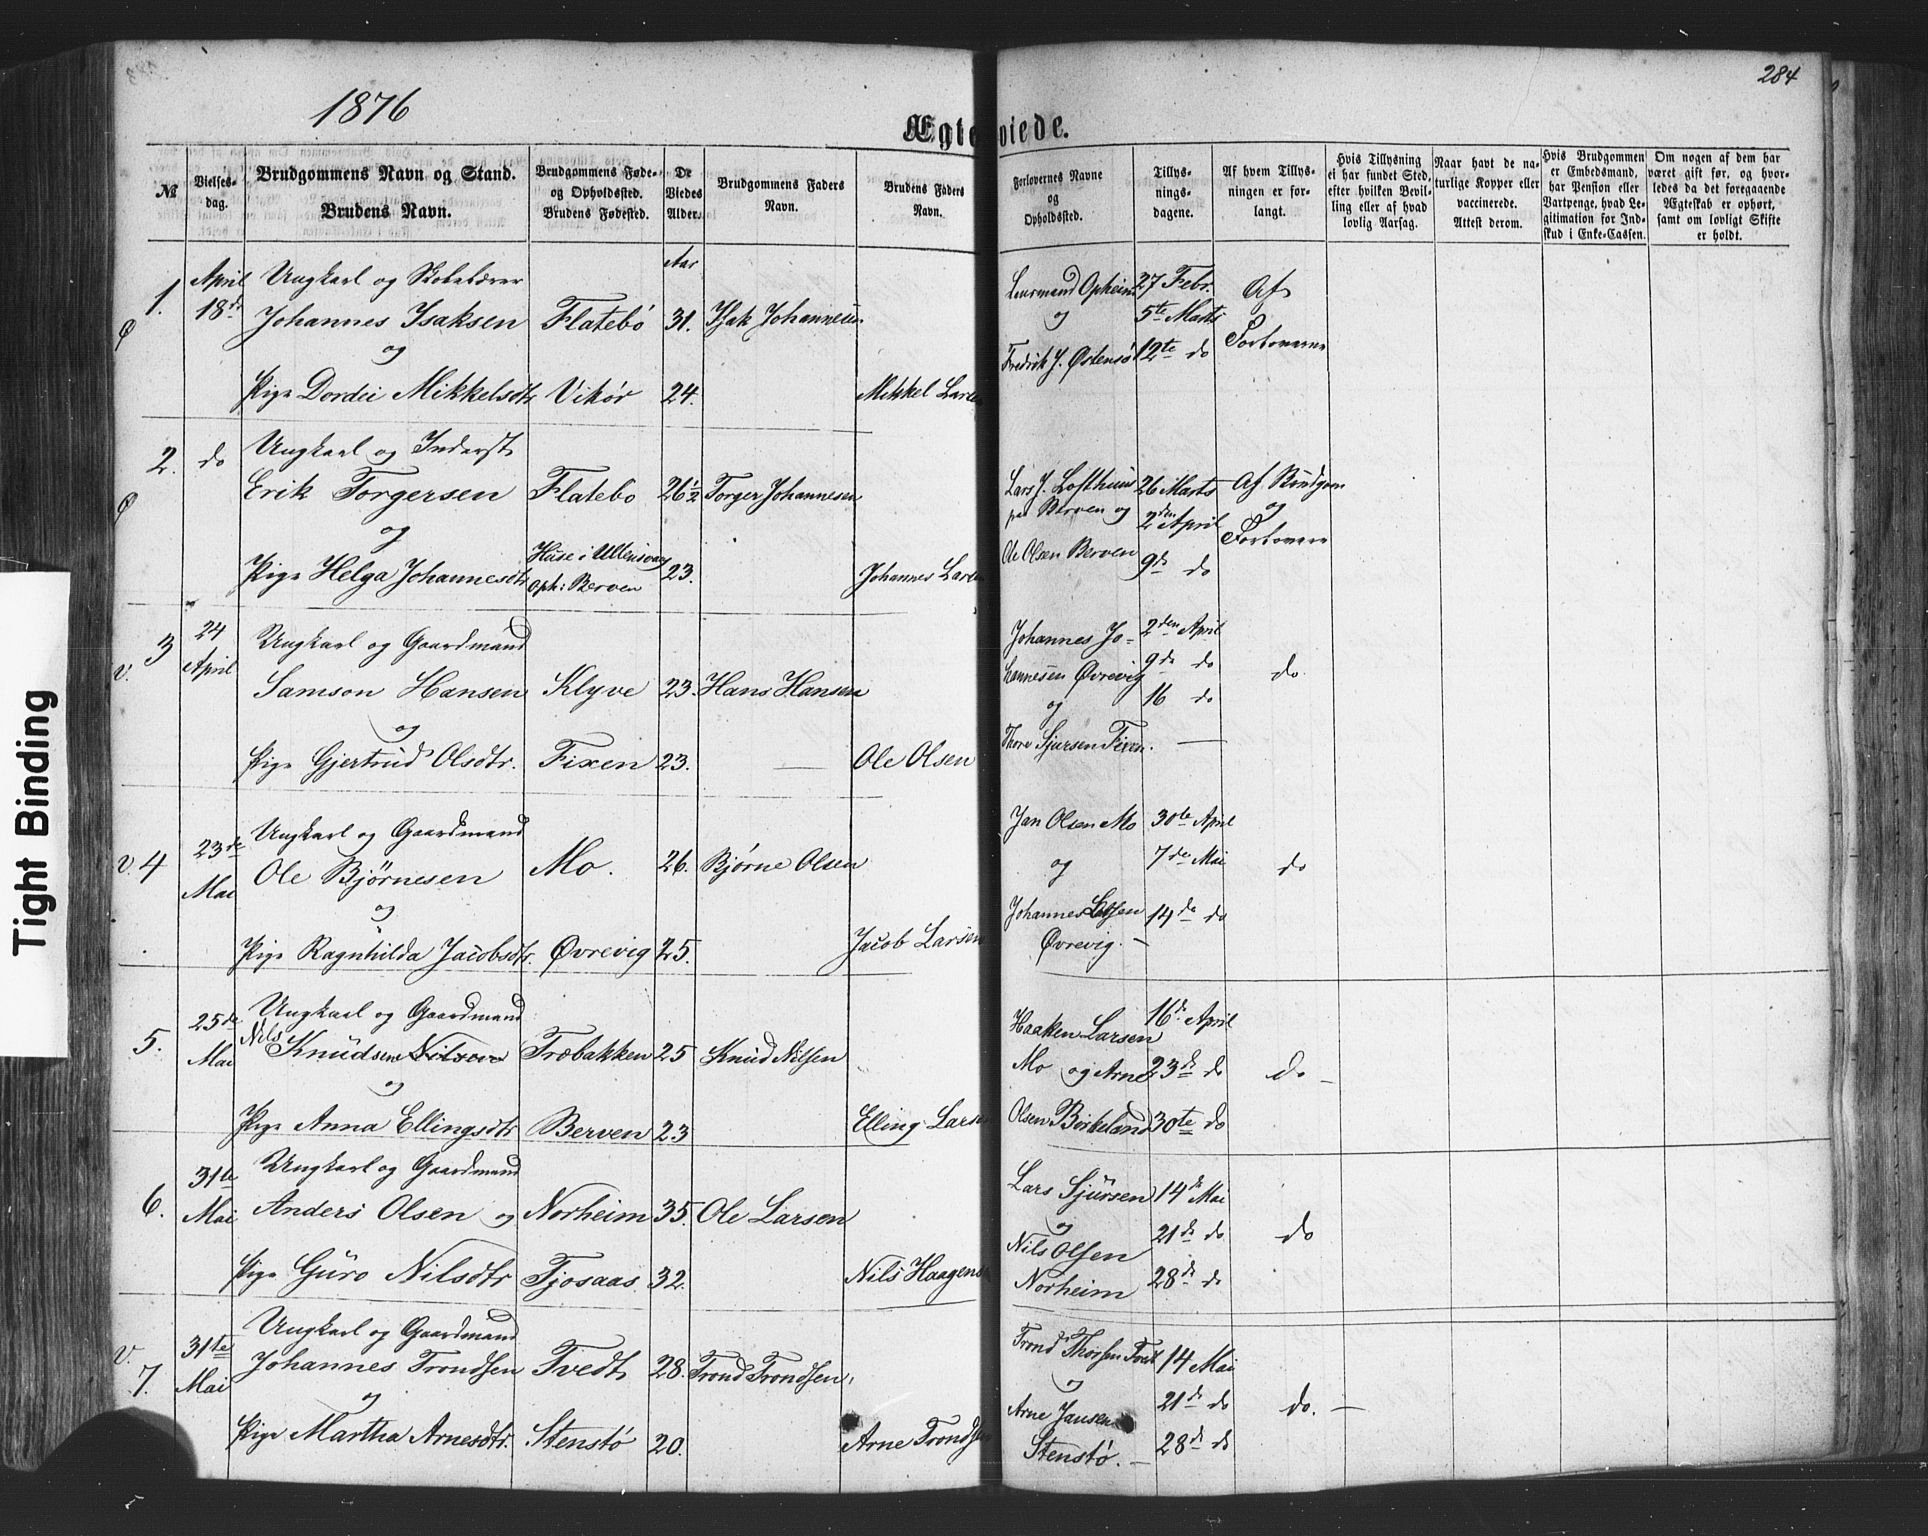 1876
284
Ægteviede.
№
Vielses-
dag.
Brudgommens Navn og Stand.
Brudens Navn.
Brudgommens Føde-
og Opholdssted.
Brudens Fødested.
De
Viedes
Alder.
Brudgommens Faders
Navn.
Brudens Faders
Navn.
Forlovernes Navne
og
Opholdssted.
Tillys-
nings-
dagene.
Af hvem Tillys-
ningen er for-
langt.
Hvis Tillysning
ei har fundet Sted,
efter hvilken Bevil-
ling eller af hvad
lovlig Aarsag.
Naar havt de na-
turlige Kopper eller
vaccinerede.
Attest derom.
Hvis Brudgommen
er Embedsmand,
har Pension eller
Vartpenge, hvad Le-
gitimation for Ind-
skud i Enke-Cassen.
Om nogen af dem har
været gift før, og hvor-
ledes da det foregaaende
Ægteskab er ophørt,
samt om lovligt Skifte
er holdt.
Aar
1. April 18de Ungkarl og Skolelærer
Johannes Isaksen Flatebö 31. Isak Johannesen
og
Pige Dordei Mikkelsdtr Vikör 24. Mikkel Larsen
Lensmand Opheim 27 Febr. Af
og 5te Marts Forloverne
Fredrik J. Östensö 12te do
2. do Ungkarl og Inderst
Erik Torgersen Flatebo 26½ Torger Johannesen
og
Pige Helga Johannesdtr Huse i Ullensvang 23. Johannes Larsen
Oph: Berven
Lars J. Lofthuus 26 Marts Af Brudgom
paa Berven og 2den April og Forlovere
Ole Olsen Berven 9de do
3 24 April Ungkarl og Gaardmand
Samson Hansen Klyve 23. Hans Hansen
og
Pige Gjertrud Olsdtr. Fixen 23. — Ole Olsen
Johannes Jo- 2den April
hannesen Øvrevig 9de do do.
og 16 do
Thore Sjursen Fixen. —
V. 4 23de Mai Ungkarl og Gaardmand
Ole Bjørnesen Mo. 26. Bjørne Olsen
og
Pige Ragnhilda Jacobsdtr. Øvrevig 25. Jacob Larsen
Jan Olsen Mo 30te April
og 7de Mai do
Johannes 14de do
Øvrevig. —
5. 25de Mai Ungkarl og Gaardmand
Nils Knudsen Træbakken 25 Knud Nilsen
og
Pige Anna Ellingsdtr Berven 23 Elling Larsen
Haaken Larsen 16de April
Mo og Arne 23de do do —
Olsen Birkeland 30te do
6. 31te Mai Ungkarl og Gaardmand
Anders Olsen og Norheim 35. Ole Larsen
Pige Guro Nilsdtr Tjosaas 32. Nils Haagens
Lars Sjursen 14de Mai
og 21de do do
Nils Olsen
Norheim 28de do
V. 7. 31te Mai Ungkarl og Gaardmand
Johannes Trondsen Tvedt 28. Trond Trondsen,
og
Pige Martha Arnesdtr. Stenstø 20. Arne Trondsen
Trond Thorsen Tvet 14 Mai
og
Arne Jansen 21de do do. —
Stenstø. — 28de do
Tight Binding